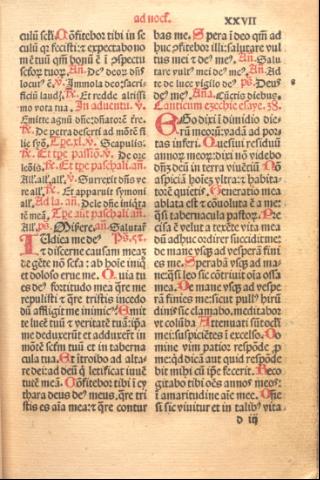 ad noct̃.
XXVII
culũ sc̃li. Cõfitebor tibi in se
culũ qr fecisti: ⁊ expectabo no
mẽ tuũ qm̃ bonũ ẽ ĩ cõspectu
sctor̃ tuor̃. Añ. Deꝰ deor̃ dñs
locutꝰ ẽ. ṽ. Immola deo: sacri-
ficiũ laudꝭ. R̃. Et redde altissi
mo vota tua. In aduentu. ṽ.
Emitte agnũ dñe: dñatorẽ ter-
re. R̃. De petra deserti ad mõtẽ fi
lie syõ. Tpe .xl. ṽ. Scapulis.
R̃. Et tpe passiõ. ṽ. De ore.
leonis. R̃. Et tpe paschali añ.
All'. all'. all'. ṽ. Surrexit dñs ve
re all'. R̃. Et apparuit symoni
all'. Ad lau. añ. Dele dñe iniqta
tẽ meã. Tpe aũt paschali añ.
All'. pș. Miserere. añ. Salutar̃
Iudica me deꝰ Pș. 42.
⁊ discerne causam meã:
de gẽte nõ scta: ab hoĩe iniq̃
et doloso erue me. Q̃uia tu
es deꝰ fortitudo mea q̃re me
repulisti ⁊ q̃re tristis incedo
dũ affligit me inimicꝰ. Emit
te lucẽ tuã ⁊ veritatẽ tuã: ip̃a
me deduxerũt et adduxerũt in
mõtẽ sctm̃ tuũ et in taberna
cula tua. Et itroibo ad alta-
re dei: ad deũ q̃ letificat iuuẽ
tutẽ meã. Cõfitebor tibi ĩ cy
thara deus deꝰ meus, q̃re tri
stis es aĩa mea: ⁊ q̃re contur
bas me. Spera ĩ deo qm̃ ad
huc cõfitebor illi: salutare vul
tus mei ⁊ deꝰ meꝰ. Añ. Salu
tare vultꝰ mei deꝰ meꝰ. Añ. Ad
te de luce vigilo deꝰ. pș.
Deus deꝰ. Añ. Cũctis diebus.
Canticum ezechie esaye. 38.
EGo dixi ĩ dimidio die-
rũ meor̃: vadã ad por
tas inferi. Q̃uesiui residuũ
annor̃ meor̃: dixi nõ videbo
dñm deũ in terra viuẽtiũ. Nõ
aspiciã hoĩez vltra: ⁊ habita-
torẽ quietis. Generatio mea
ablata est ⁊ cõuoluta ẽ a me:
q̃si tabernacula pastor̃. Pre
cisa ẽ velut a texẽte vita mea
dũ adhuc ordirer succidit me:
de mane vsq̃ ad vesperã fini
es me. Sperabã vsq̃ ad ma
ne: q̃si leo sic cõtriuit oĩa ossa
mea. De mane vsq̃ ad vespe
rã finies me: sicut pullꝰ hirũ
dinis sic clamabo. meditabor
vt colũba. Attenuati sũt oc̃li
mei: suspiciẽtes ĩ excelso. Do
mine vim patior respõde p̃
me: qd dicã aut quid respõde
bit mihi cũ ip̃e fecerit. Reco
gitabo tibi oẽs annos meos:
ĩ amaritudine aĩe mee. Dñe
si sic viuitur et in talibꝰ vita
d iij